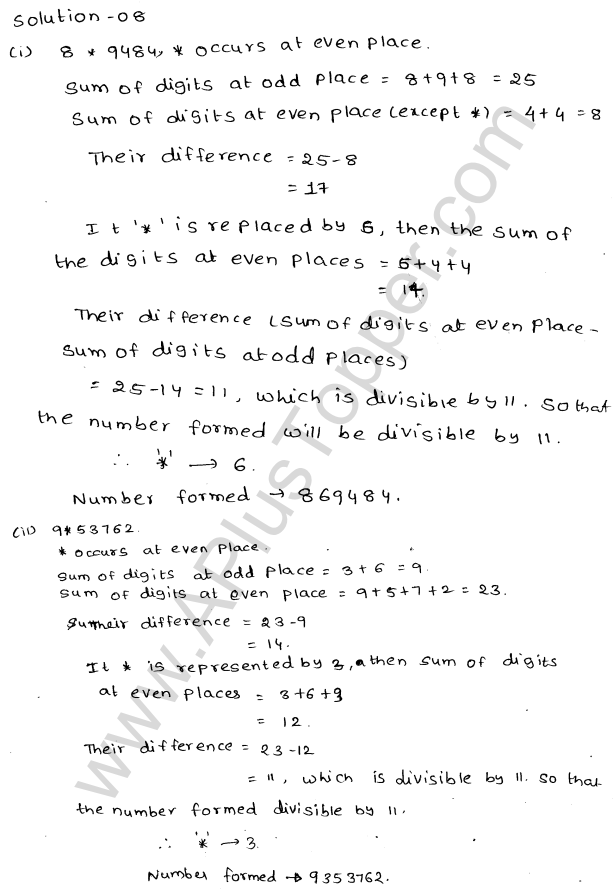 Solution-08
(i) 8 * 9484, * occurs at even place.
Sum of digits at odd place = 8+9+8 = 25
Sum of digits at even place (except *) = 4+4 = 8
Their difference = 25-8
= 17
It '*' is replaced by 6, then the sum of
the digits at even places = 6+4+4
= 14.
Their difference (sum of digits at even place -
sum of digits at odd places)
= 25-14 = 11, which is divisible by 11. so that
the number formed will be divisible by 11.
∴ '*' → 6.
Number formed → 869484.
(ii) 9*53762.
* occurs at even place.
sum of digits at odd place = 3+6 = 9.
sum of digits at even place = 9+5+7+2 = 23.
Their difference = 23-9
= 14.
It * is represented by 3, then sum of digits
at even places = 3+6+3
= 12.
Their difference = 23-12
= 11, which is divisible by 11. so that
the number formed divisible by 11.
∴ '*' → 3.
Number formed → 9353762.
www.APlusTopper.com